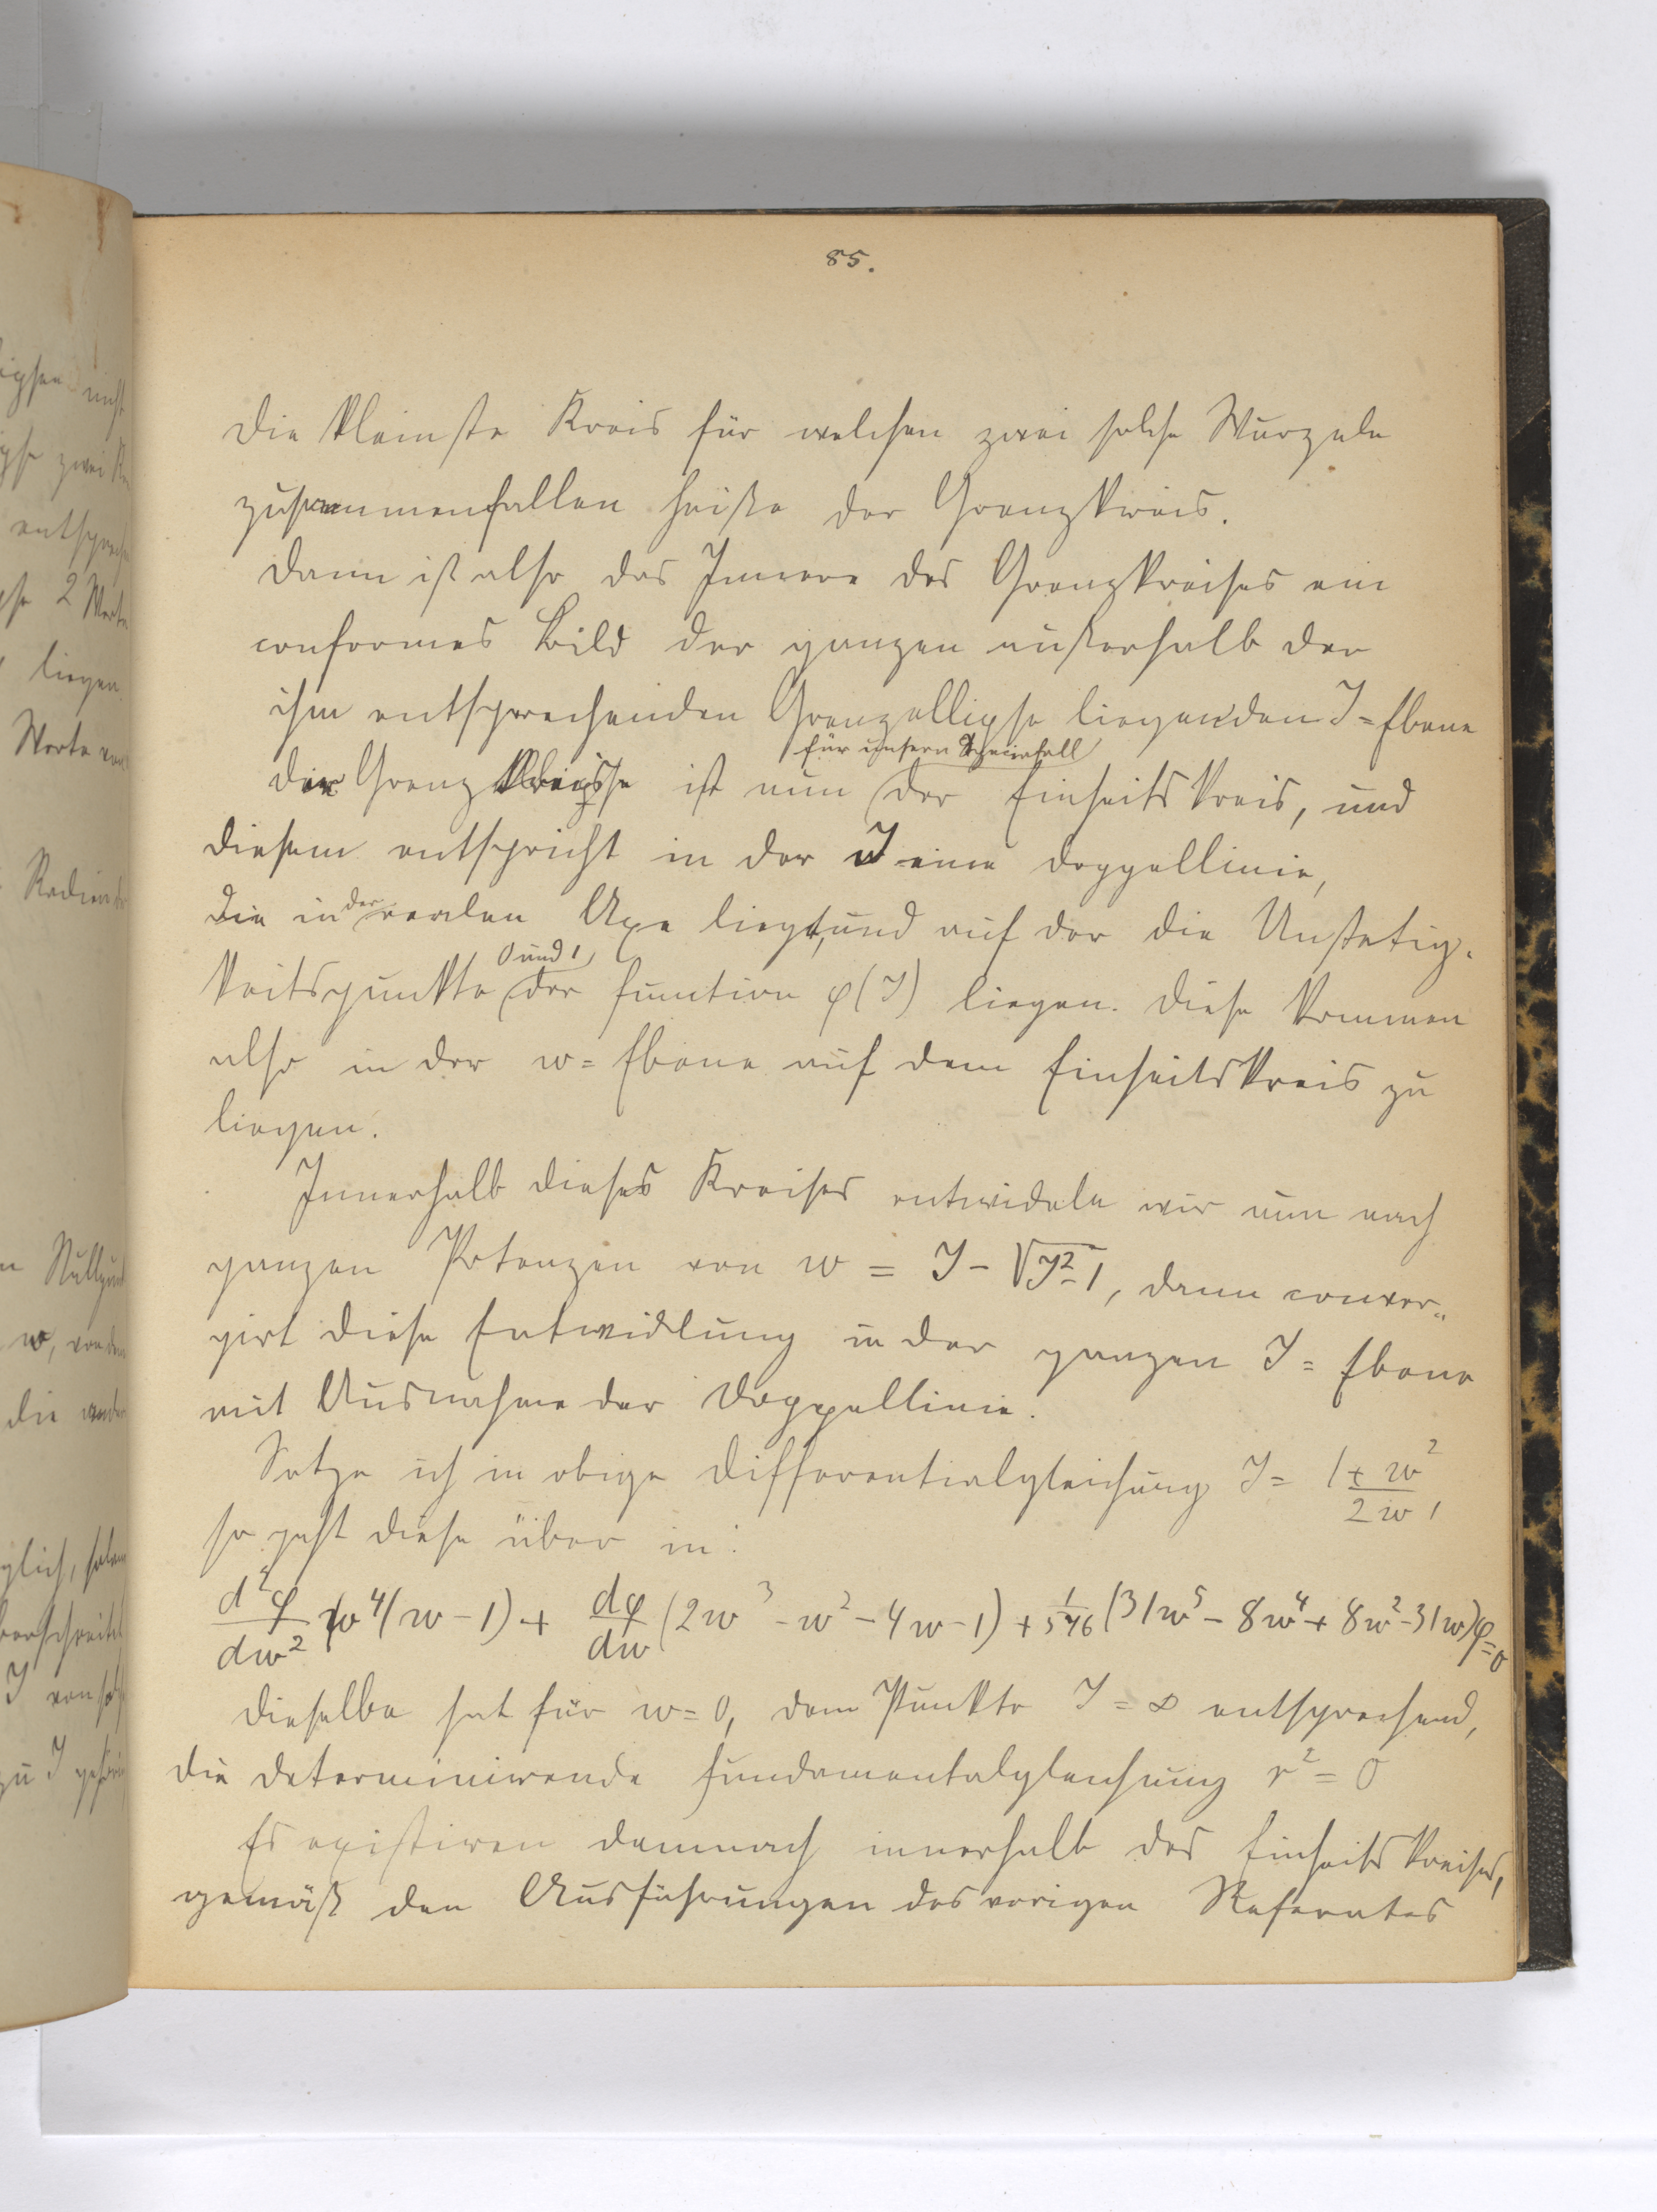 85.
Die kleinste Kreis für welchen zwei solche Wurzeln
zusammenfallen heiße der Grenzkreis.
Dann ist also das Innere des Grenzkreises ein
conformes Bild der ganzen außerhalb der
ihm entsprechenden Grenzellipse liegenden J=Ebene
für unsern Specialfall
Der Grenzkreis ist nun der Einheitskreis, und
diesem entspricht in der J eine Doppellinie,
die in der reellen Axe liegt, und auf der die Unstetig-
keitspunkte 0 und 1 der Function φ(J) liegen. Diese kommen
also in der w=Ebene auf dem Einheitskreis zu
liegen.
Innerhalb dieses Kreises entwickeln wir nun nach
ganzen Potenzen von w = J - √J²-1, dann conver-
girt diese Entwicklung in der ganzen J=Ebene
mit Ausnahme der Doppellinie.
Setze ich in obige Differentialgleichung J = (1+w²)/2w,
so geht diese über in:
d²φ/dw² w⁴(w-1) + dφ/dw (2w³-w²-4w-1) + (31w⁵-8w⁴+8w²-31w)φ=0
Dieselbe hat für w=0, dem Punkte J=∞ entsprechend,
die determinirende Fundamentalgleichung r²=0
Es existiren demnach innerhalb des Einheitskreises,
gemäß den Ausführungen des vorigen Referates